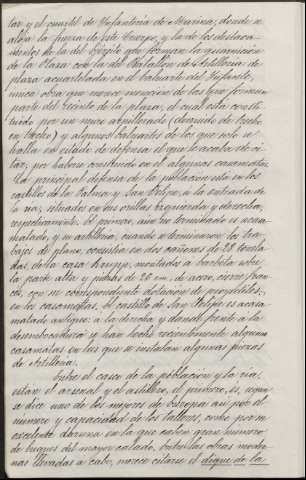 tar y el cuartel de Infantería de Marina, donde se
aloja la fuerza de este Cuerpo, y la de los destaca-
mentos de la del Egército que forman la guarnición
de la Plaza con la del Batallón de Artillería de
plaza acuartelada en el baluarte del Infante,
única obra que merece mención de las que forman
parte del recinto de la plaza, el cual está consti-
tuido por un muro aspillerado (derruido de trecho
en trecho) y algunos baluartes de los que solo se
halla en estado de defensa el que se acaba de ci-
tar, por haberse construido en él algunas casamatas.
La principal defensa de la población está en los
castillos de la Palma y San Felipe, á la entrada de
la ría, situados en sus orillas izquierda y derecha,
respectivamente. El primero, aún no terminado es acasa-
matado, y su artillería, cuando se terminaron los tra-
bajos de plano, consistía en dos cañones de 28 tonela-
das, de la casa Krupp, montados á barbeta sobre
la parte alta y piezas de 26 cm, de acero, cierre fran-
cés, con su correspondiente dotación de proyectiles,
en las casamatas. El castillo de San Felipe es acasa-
matado antiguo á la derecha y dando frente á la
desembocadura se han hecho recientemente algunas
casamatas en las que se instalan algunas piezas
de Artillería.
Entre el casco de la población y la ría,
están el arsenal y el astillero, el primero, es, según
se dice uno de los mejores de Europa así por el
número y capacidad de los talleres, como por su
excelente dársena en la que caben gran número
de buques del mayor calado. Entre las obras moder-
nas llevadas á cabo, merece citarse el dique de la